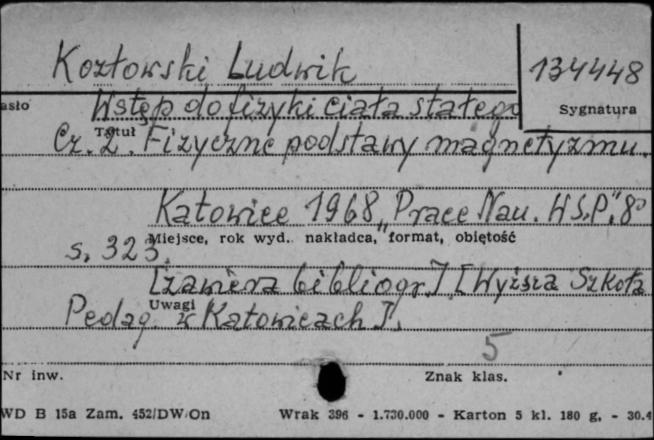 Kozłowski Ludwik 134448
asło Wstęp do fizyki ciała stałego Sygnatura
Tytuł
Cz. 2. Fizyczne podstawy magnetyzmu.
Katowice 1968 „Prace Nau. WSP." 8°
Miejsce, rok wyd. nakładca, format, objętość
s. 323.
[zawiera bibliogr.] [Wyższa Szkoła
Uwagi
Pedag. w Katowicach].
5
Nr inw. Znak klas.
WD B 15a Zam. 452/DW/On Wrak 396 - 1.730.000 - Karton 5 kl. 180 g. - 30.4